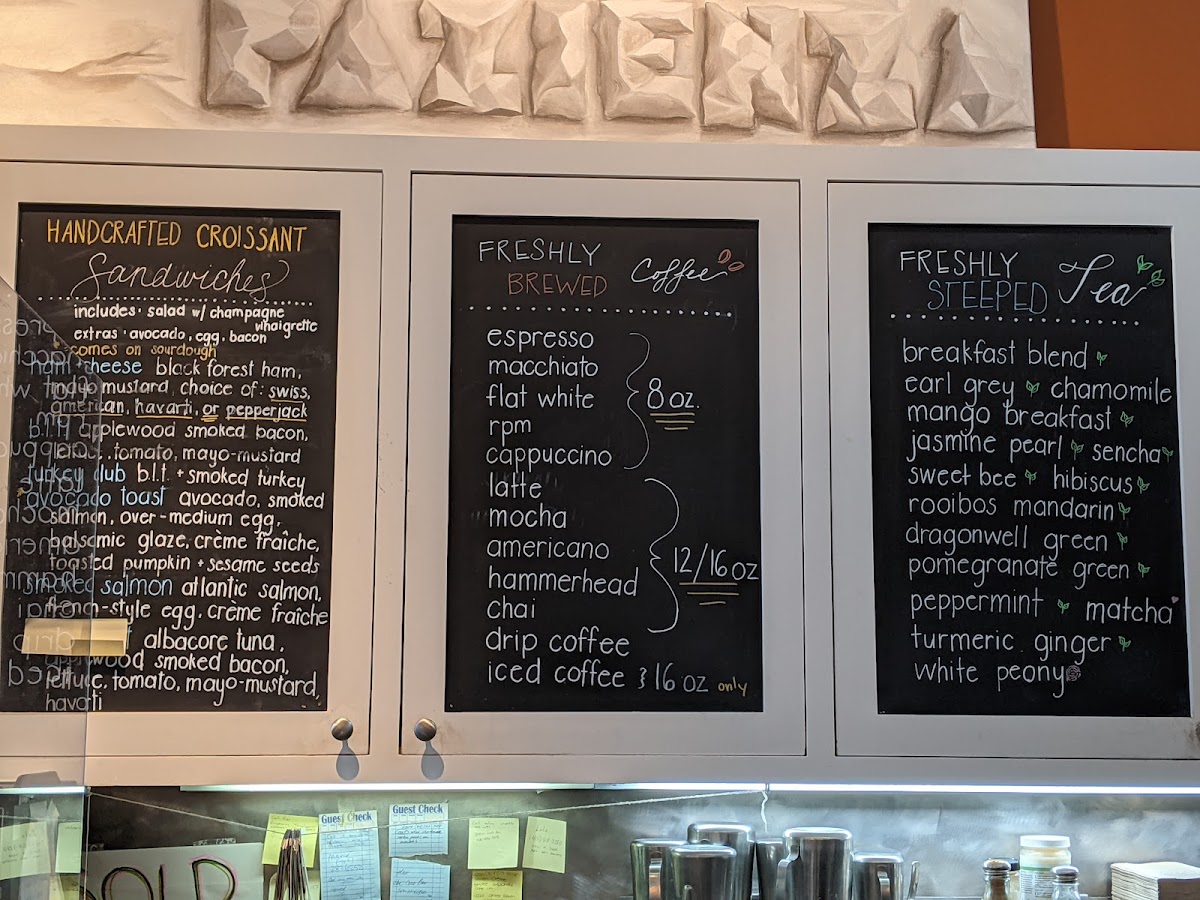 PAZIENZA
HANDCRAFTED CROISSANT
Sandwiches
includes: salad w/ champagne
vinaigrette
extras: avocado, egg, bacon
comes on sourdough
ham + cheese black forest ham,
mustard, choice of: swiss,
american, havarti, or pepperjack
b.l.t. applewood smoked bacon,
tomato, mayo-mustard
turkey club b.l.t. + smoked turkey
avocado toast avocado, smoked
salmon, over-medium egg,
balsamic glaze, crème fraîche,
toasted pumpkin + sesame seeds
smoked salmon atlantic salmon,
-style egg, crème fraîche
albacore tuna,
applewood smoked bacon,
lettuce, tomato, mayo-mustard,
havarti
FRESHLY
BREWED Coffee
espresso
macchiato
flat white
rpm
cappuccino
8 oz.
latte
mocha
americano
hammerhead
chai
12/16 oz
drip coffee
iced coffee } 16 oz only
FRESHLY
STEEPED Tea
breakfast blend
earl grey chamomile
mango breakfast
jasmine pearl sencha
sweet bee hibiscus
rooibos mandarin
dragonwell green
pomegranate green
peppermint matcha
turmeric ginger
white peony
Guest Check
Guest Check
OLD